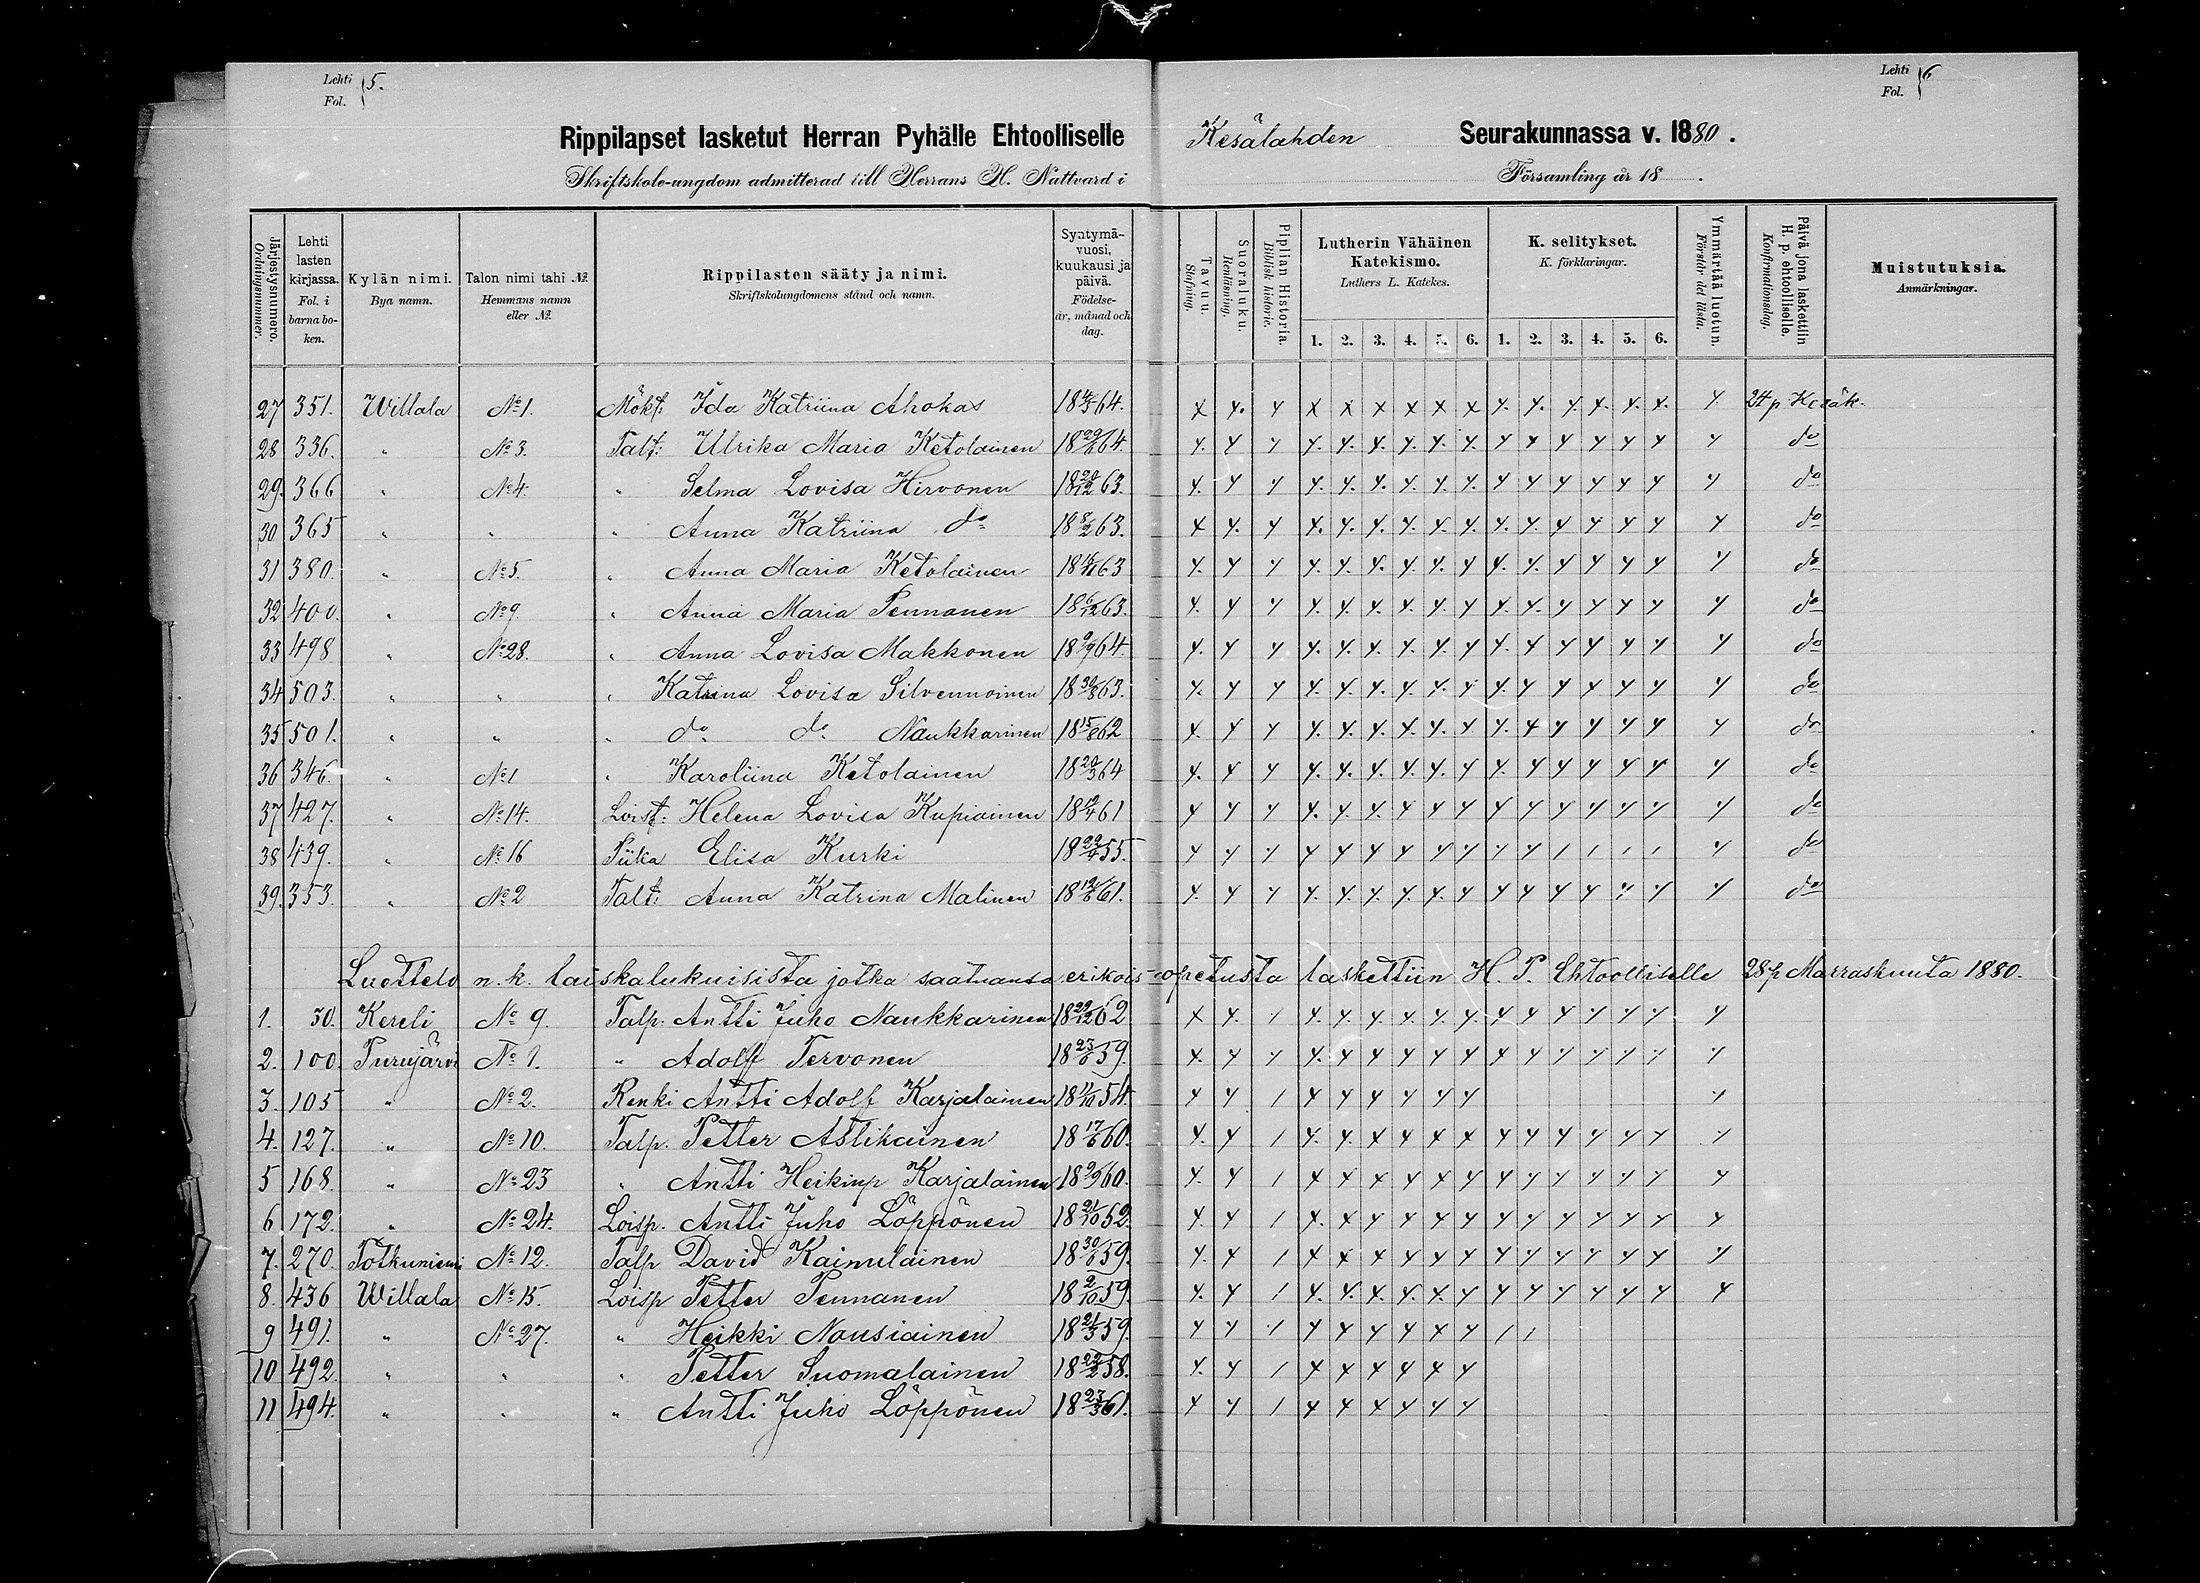 Lehti Fol. 5.
Lehti Fol. 6
Rippilapset lasketut Herran Pyhälle Ehtoolliselle Kesälahden Seurakunnassa v. 1880.
Skriftskole-ungdom admitterad till Herrans H. Nattvard i Församling år 18 .
Järjestysnumero. Ordningsnummer.
Lehti lasten kirjassa. Fol. i barnaboken.
Kylän nimi. Bya namn.
Talon nimi tahi №. Hemmans namn eller №.
Rippilasten sääty ja nimi. Skriftskolungdomens stånd och namn.
Syntymävuosi, kuukausi ja päivä. Födelseår, månad och dag.
Tavuu. Stafning.
Suoraluku. Renläsning.
Piplian Historia. Biblisk historie.
Lutherin Vähäinen Katekismo. Luthers L. Katekes.
K. selitykset. K. förklaringar.
Ymmärtää luetun. Förstår det lästa.
Päivä jona laskettiin H. p. ehtoolliselle. Konfirmationsdag.
Muistutuksia. Anmärkningar.
1. 2. 3. 4. 5. 6. 1. 2. 3. 4. 5. 6.
27 351. Willala No 1. Mökt: Ida Katriina Ahokas 64. 24 p. Kesäk.
28 336. " No 3. Talt: Ulrika Maria Ketolainen 64. do
29. 366 " No 4. " Selma Lovisa Hirvonen 18 20/12 63. do
30 365 " " " Anna Katriina do 18 8/2 63. do
31 380. " No 5. " Anna Maria Ketolainen 63 do
32 400. " No 9. " Anna Maria Pennanen 18 6/12 63. do
33 498 " No 28. " Anna Lovisa Makkonen 18 9/9 64. do
34 503. " " " Katrina Lovisa Silvennoinen 18 30/8 63. do
35 501. " " " do do Naukkarinen 18 15/8 62 do
36 346. " No 1 " Karoliina Ketolainen 18 20/3 64 do
37 427. " No 14. Loist: Helena Lovisa Kupiainen 61 do
38 439. " No 16 Piika Elisa Kurki 55. do
39. 353. " No 2 Talt: Anna Katrina Malinen 61. do
Luettelo n.k. laiskalukuisista jotka saatuansa erikois-opetusta laskettiin H. P. Ehtoolliselle 28 p Marraskuuta 1880.
1. 30. Kereli No 9. Talp. Antti Juho Naukkarinen 18 29/12 62
2. 100. Purujärvi No 1. " Adolf Tervonen 18 23/6 59.
3. 105 " No 2. Renki Antti Adolf Karjalainen 18 11/10 54.
4. 127. " No 10. Talp. Petter Astikainen 18 17/6 60.
5 168. " No 23 " Antti Heikinp Karjalainen 18 9/9 60.
6 172. " No 24. Loisp. Antti Juho Löppönen 18 21/10 52.
7. 270. Totkuniemi No 12. Talp David Kainulainen 18 30/6 59.
8. 436 Willala No 15. Loisp Petter Pennanen 18 2/10 59.
9 491. " No 27. " Heikki Nousiainen 18 21/3 59.
10 492. " " " Petter Suomalainen 18 22/2 58.
11 494. " " " Antti Juho Löppönen 18 23/3 61.